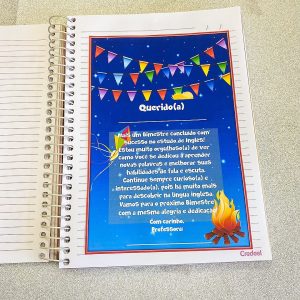 Querido(a)
Mais um Bimestre concluído com
sucesso no estudo de Inglês!
Estou muito orgulhoso(a) de ver
como você se dedicou a aprender
novas palavras e melhorar suas
habilidades de fala e escuta.
Continue sempre curioso(a) e
interessado(a), pois há muito mais
para descobrir na língua inglesa.
Vamos para o próximo Bimestre
com a mesma alegria e dedicação
Com carinho,
Professora
Credeal